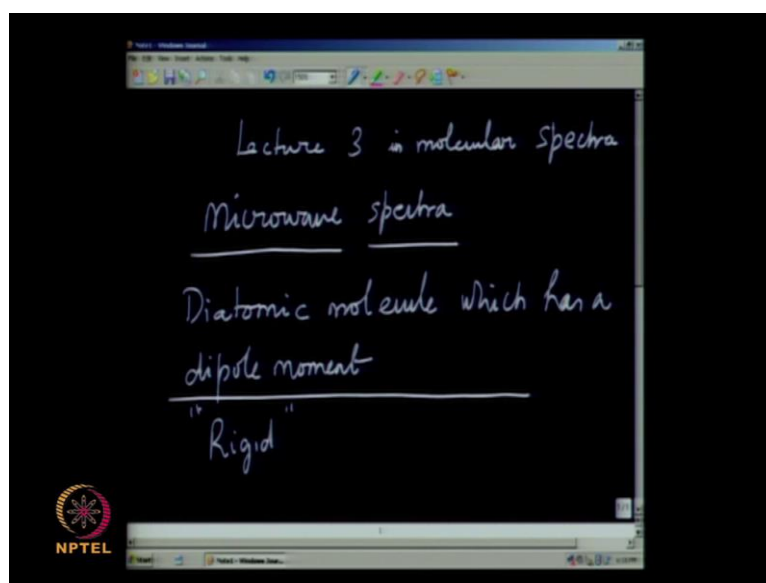 Note1 - Windows Journal
File Edit View Insert Actions Tools Help
Lecture 3 in molecular spectra
Microwave spectra
Diatomic molecule which has a
dipole moment
"Rigid"
1/1
NPTEL
1
Start
Note1 - Windows Jour...